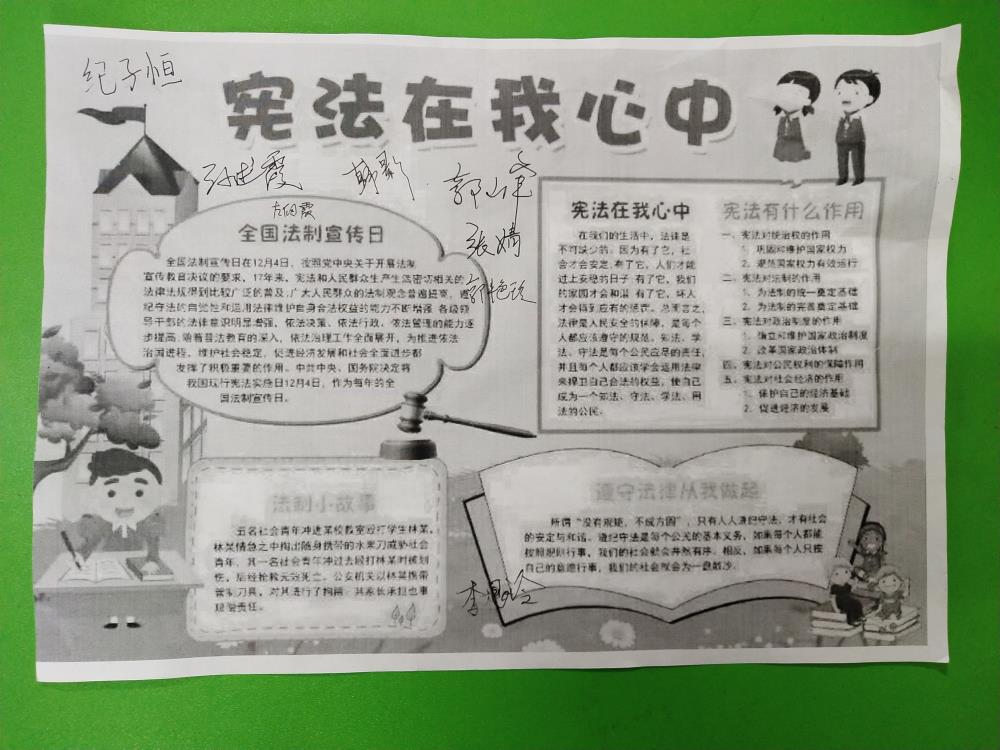 纪子恒
宪法在我心中
韩影
张婧
全国法制宣传日
全国法制宣传日在12月4日，按照党中央关于开展法制
宣传教育决议的要求，17年来，宪法和人民群众生产生活密切相关的
法律法规得到比较广泛的普及；广大人民群众的法制观念普遍提高，遵
纪守法的自觉性和运用法律维护自身合法权益的能力不断增强 各级领
导干部的法律意识明显增强，依法决策、依法行政、依法管理的能力逐
步提高.随着普法教育的深入，依法治理工作全面展开，为推进依法
治国进程，维护社会稳定，促进经济发展和社会全面进步都
发挥了积极重要的作用。中共中央、国务院决定将
我国现行宪法实施日12月4日，作为每年的全
国法制宣传日。
宪法在我心中
在我们的生活中，法律是
不可缺少的，因为有了它，社
会才会安定.有了它，人们才能
过上安稳的日子.有了它，我们
的家园才会和谐.有了它，坏人
才会得到应有的惩罚。总而言之，
法律是人民安全的保障，是每个
人都应该遵守的规范。知法、学
法、守法是每个公民应尽的责任，
并且每个人都应该学会运用法律
来捍卫自己合法的权益，使自己
成为一个知法、守法、学法、用
法的公民。
宪法有什么作用
一、宪法对统治权的作用
1、巩固和维护国家权力
2、规范国家权力有效运行
二、宪法对法制的作用
1、为法制的统一奠定基础
2、为法制的完善奠定基础
三、宪法对政治制度的作用
1、确立和维护国家政治制度
2、改革国家政治体制
四、宪法对公民权利的保障作用
五、宪法对社会经济的作用
1、保护自己的经济基础
2、促进经济的发展
法制小故事
五名社会青年冲进某校教室殴打学生林某，
林某情急之中掏出随身携带的水果刀威胁社会
青年，其一名社会青年冲过去殴打林某时被划
伤，后经抢救无效死亡。公安机关以林某携带
管制刀具，对其进行了拘留，其家长承担也事
赔偿责任。
遵守法律从我做起
所谓“没有规矩，不成方圆”，只有人人遵纪守法，才有社会
的安定与和谐。遵纪守法是每个公民的基本义务，如果每个人都能
按照规则行事，我们的社会就会井然有序。相反，如果每个人只按
自己的意愿行事，我们的社会就会为一盘散沙。